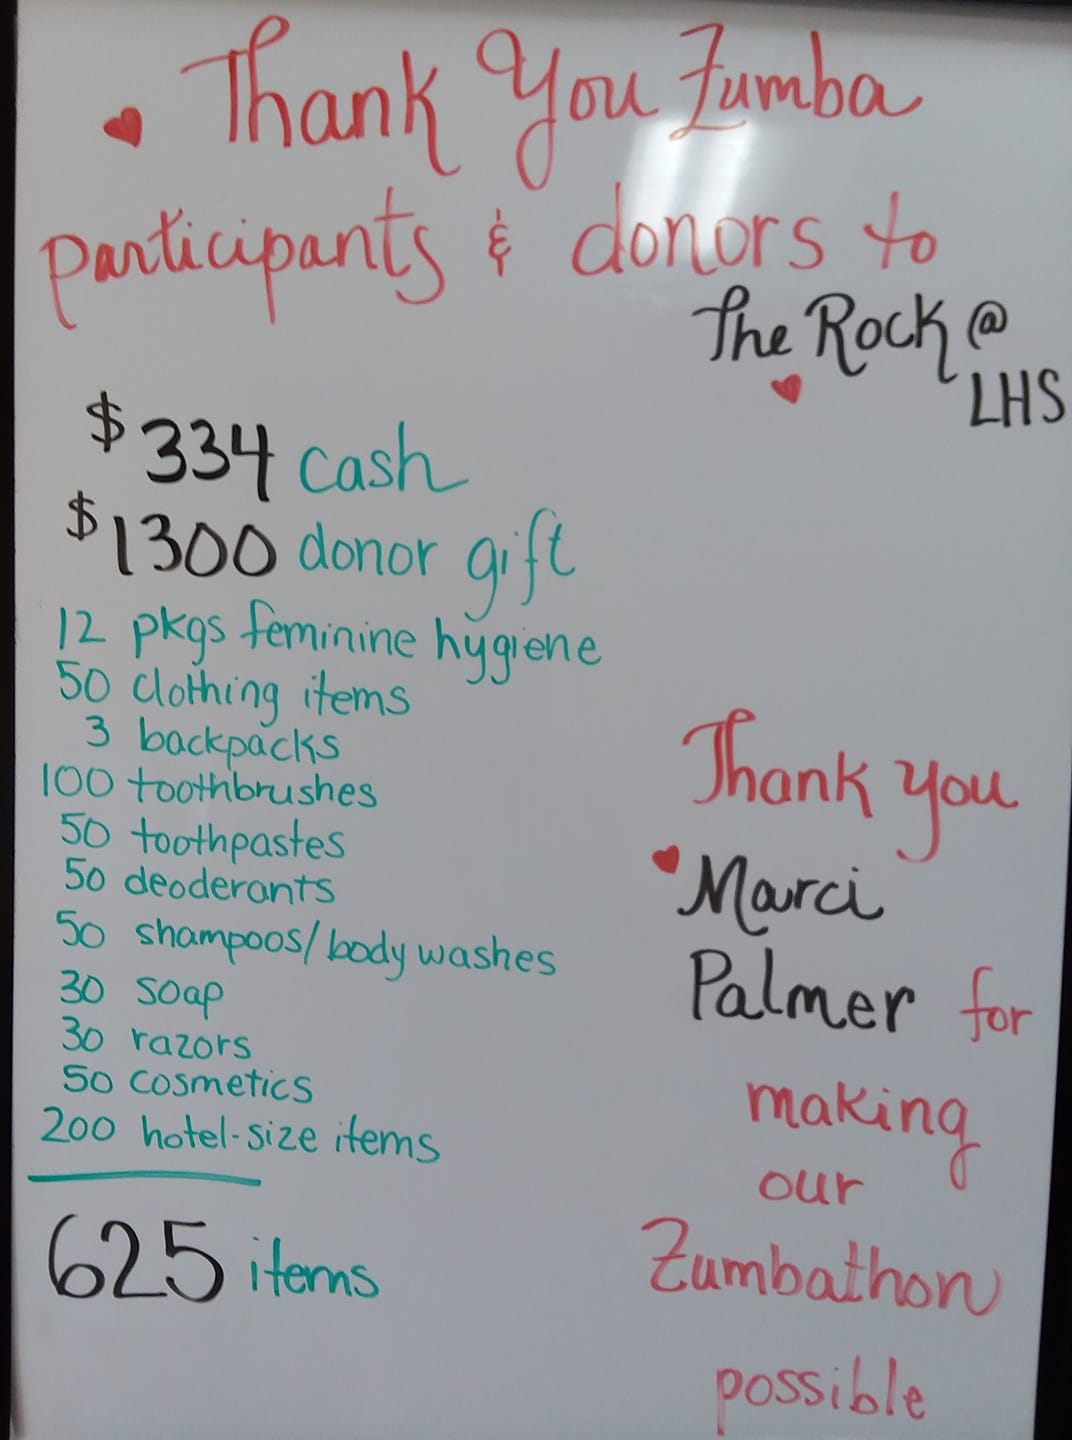 Thank You Zumba
participants & donors to
The Rock @
LHS
$334 cash
$1300 donor gift
12 pkgs feminine hygiene
50 clothing items
3 backpacks
100 toothbrushes
50 toothpastes
50 deoderants
50 shampoos/body washes
30 soap
30 razors
50 cosmetics
200 hotel-size items
625 items
Thank you
Marci
Palmer for
making
our
Zumbathon
possible